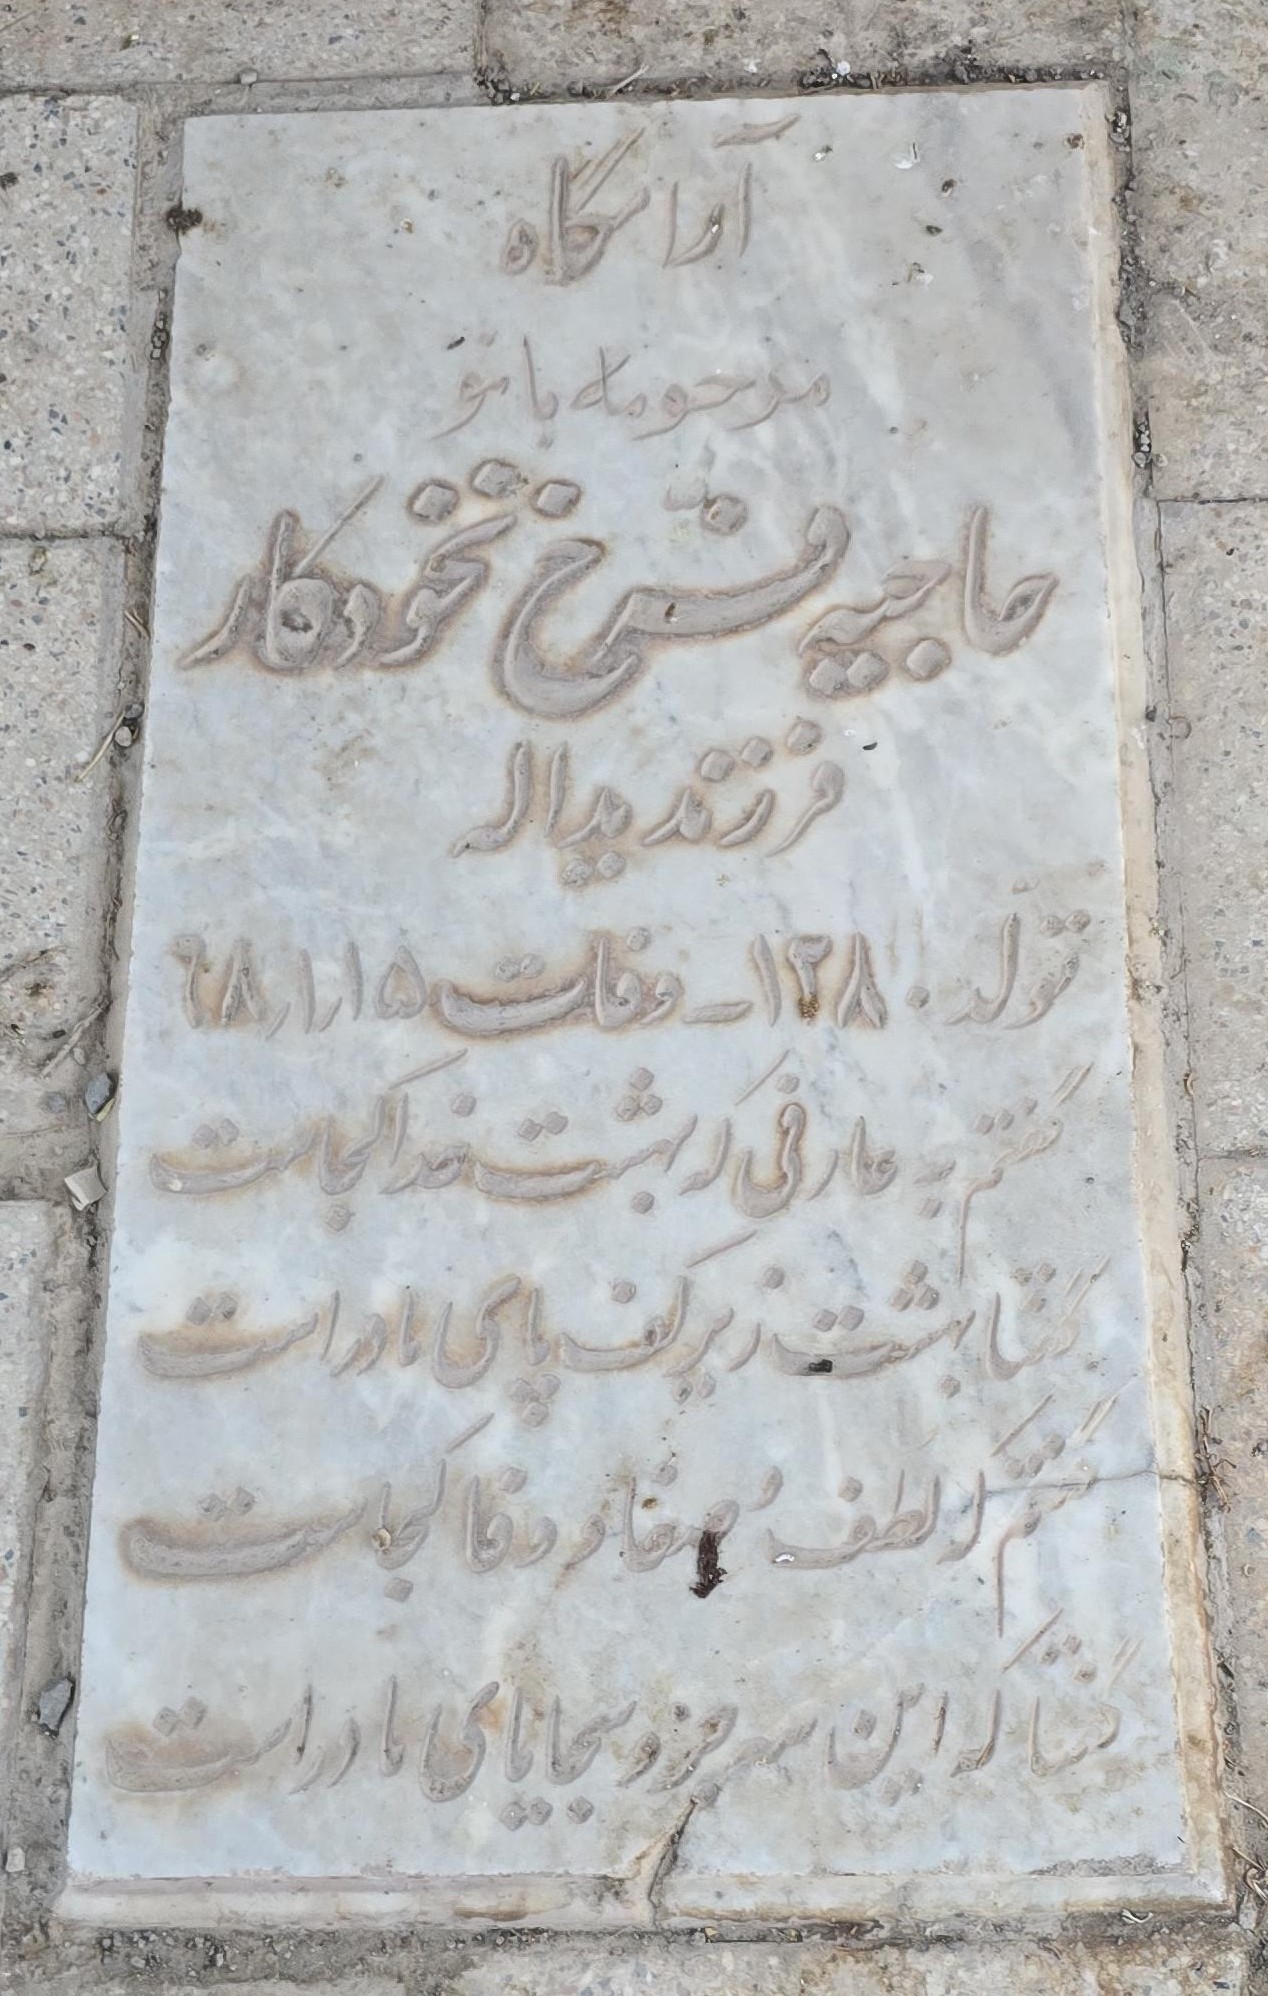 آرامگاه
مرحومه بانو
حاجیه فرّخ نخودکار
فرزند یداله
تولّد ۱۲۸۰ - وفات ۶۸٫۱٫۱۵
گفتم به عارفی که بهشت خدا کجاست
گفتا بهشت زیر کف پای مادر است
گفتم که لطف و صفا و وفا کجاست
گفتا که این سه جزو سجایای مادر است